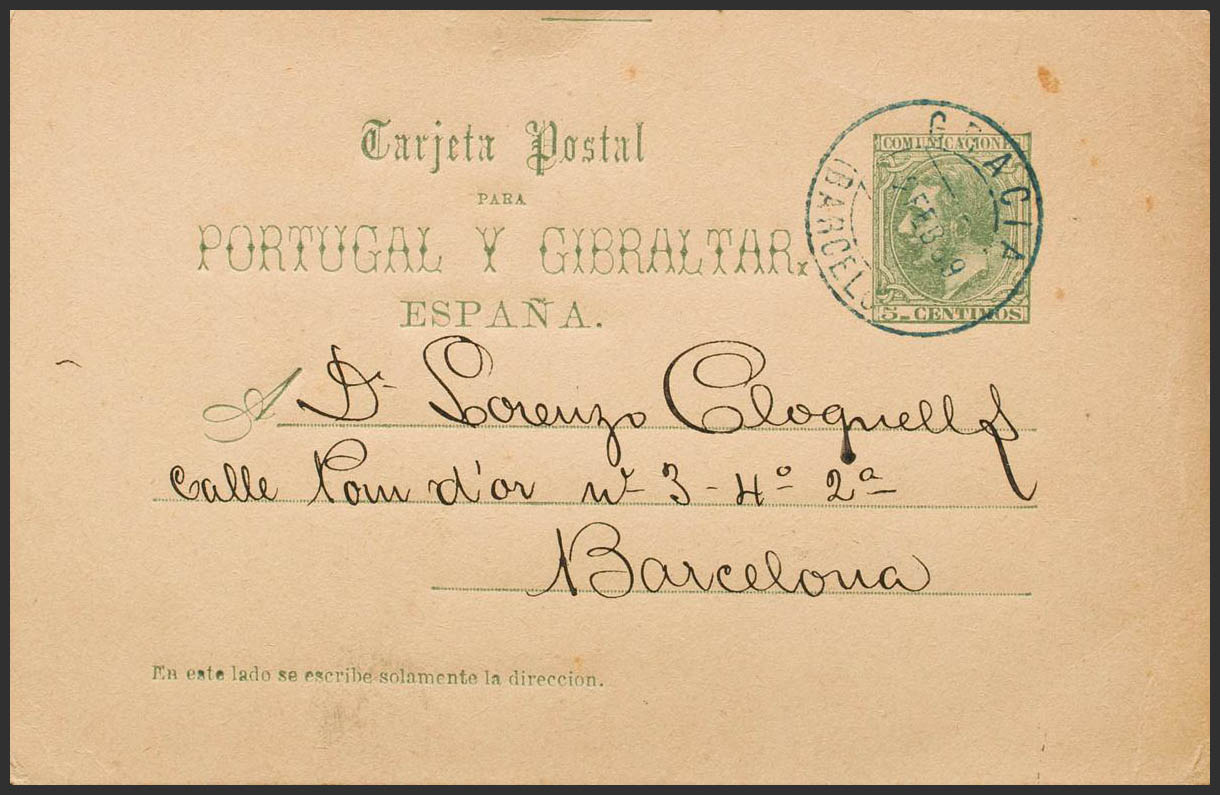 Tarjeta Postal
PARA
PORTUGAL Y GIBRALTAR.
ESPAÑA.
COMUNICACIONES
5- CENTIMOS
GRACIA
FEB 89
(BARCELO
A Dn Lorenzo Cloquells
Calle Pom d'or no 3-4º 2ª
Barcelona
En este lado se escribe solamente la direccion.